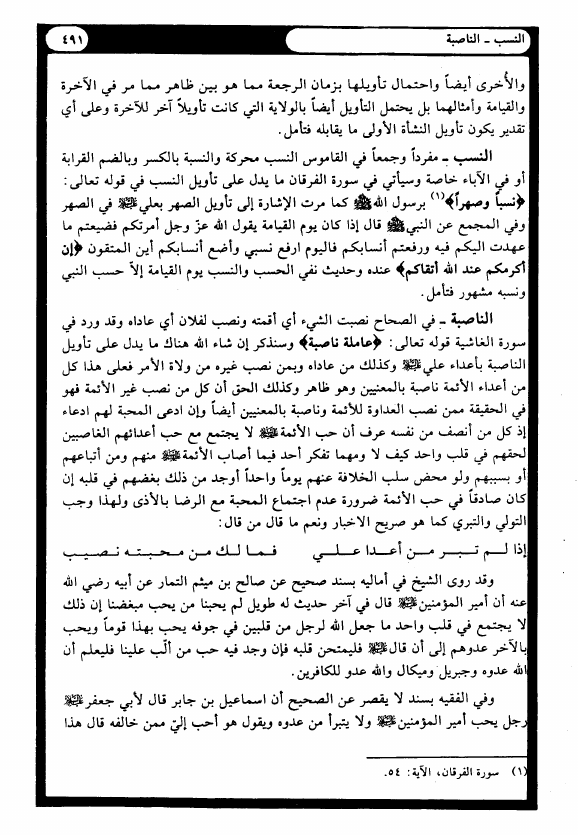 النسب ـ الناصبة
٤٩١
والأخرى أيضاً واحتمال تأويلها بزمان الرجعة مما هو بين ظاهر مما مر في الآخرة
والقيامة وأمثالهما بل يحتمل التأويل أيضاً بالولاية التي كانت تأويلاً آخر للآخرة وعلى أي
تقدير يكون تأويل النشأة الأولى ما يقابله فتأمل.
النسب ـ مفرداً وجمعاً في القاموس النسب محركة والنسبة بالكسر وبالضم القرابة
أو في الآباء خاصة وسيأتي في سورة الفرقان ما يدل على تأويل النسب في قوله تعالى:
﴿نسباً وصهراً﴾(١) برسول الله ﷺ كما مرت الإشارة إلى تأويل الصهر بعلي عليه السلام في الصهر
وفي المجمع عن النبي ﷺ قال إذا كان يوم القيامة يقول الله عزّ وجل أمرتكم فضيعتم ما
عهدت اليكم فيه ورفعتم أنسابكم فاليوم ارفع نسبي وأضع أنسابكم أين المتقون ﴿إن
أكرمكم عند الله أتقاكم﴾ عنده وحديث نفي الحسب والنسب يوم القيامة إلاّ حسب النبي
ونسبه مشهور فتأمل.
الناصبة ـ في الصحاح نصبت الشيء أي أقمته ونصب لفلان أي عاداه وقد ورد في
سورة الغاشية قوله تعالى: ﴿عاملة ناصبة﴾ وسنذكر إن شاء الله هناك ما يدل على تأويل
الناصبة بأعداء علي عليه السلام وكذلك من عاداه وبمن نصب غيره من ولاة الأمر فعلى هذا كل
من أعداء الأئمة ناصبة بالمعنيين وهو ظاهر وكذلك الحق أن كل من نصب غير الأئمة فهو
في الحقيقة ممن نصب العداوة للأئمة وناصبة بالمعنيين أيضاً وإن ادعى المحبة لهم ادعاء
إذ كل من أنصف من نفسه عرف أن حب الأئمة عليه السلام لا يجتمع مع حب أعدائهم الغاصبين
لحقهم في قلب واحد كيف لا ومهما تفكر أحد فيما أصاب الأئمة عليه السلام منهم ومن أتباعهم
أو بسببهم ولو محض سلب الخلافة عنهم يوماً واحداً أوجد من ذلك بغضهم في قلبه إن
كان صادقاً في حب الأئمة ضرورة عدم اجتماع المحبة مع الرضا بالأذى ولهذا وجب
التولي والتبري كما هو صريح الاخبار ونعم ما قال من قال:
إذا لم تبر من أعدا علي فما لك من محبته نصيب
وقد روى الشيخ في أماليه بسند صحيح عن صالح بن ميثم التمار عن أبيه رضي الله
عنه أن أمير المؤمنين عليه السلام قال في آخر حديث له طويل لم يحبنا من يحب مبغضنا إن ذلك
لا يجتمع في قلب واحد ما جعل الله لرجل من قلبين في جوفه يحب بهذا قوماً ويحب
بالآخر عدوهم إلى أن قال عليه السلام فليمتحن قلبه فإن وجد فيه حب من ألّب علينا فليعلم أن
الله عدوه وجبريل وميكال والله عدو للكافرين.
وفي الفقيه بسند لا يقصر عن الصحيح أن اسماعيل بن جابر قال لأبي جعفر عليه السلام
رجل يحب أمير المؤمنين عليه السلام ولا يتبرأ من عدوه ويقول هو أحب إليّ ممن خالفه قال هذا
(١) سورة الفرقان، الآية: ٥٤.